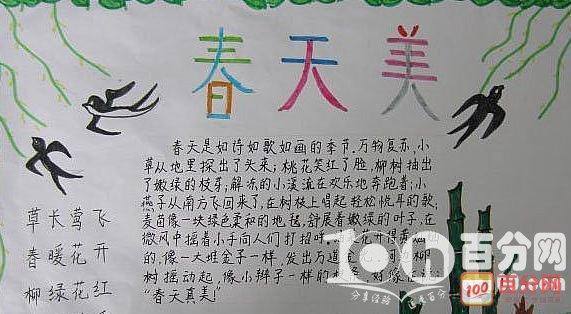 春天美
春天是如诗如歌如画的季节,万物复苏,小
草从地里探出了头来;桃花笑红了脸,柳树抽出
了嫩绿的枝芽;解冻的小溪流在欢乐地奔跑着;小
燕子从南方飞回来了,在树枝上唱起轻松悦耳的歌;
麦苗像一块绿色柔和的地毯,舒展着嫩绿的叶子,在
微风中摇着小手向人们打招呼
的,像一大堆金子一样,发出万道金
树摇动起,像小辫子一样的
“春天真美!”
草长莺飞
春暖花开
柳绿花红
100百分网
分享经验
100